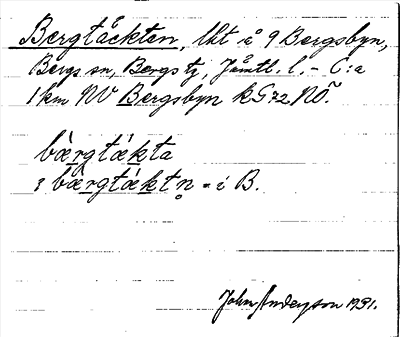 Bergtäckten, lht å 9 Bergsbyn,
Bergs sn, Bergs tg, Jämtl. l. - C:a
1 km NV Bergsbyn kG72 NÖ.
bæ̀rgtækta
i bæ̀rgtæktn̥ - i B.
John Anderson 1931.